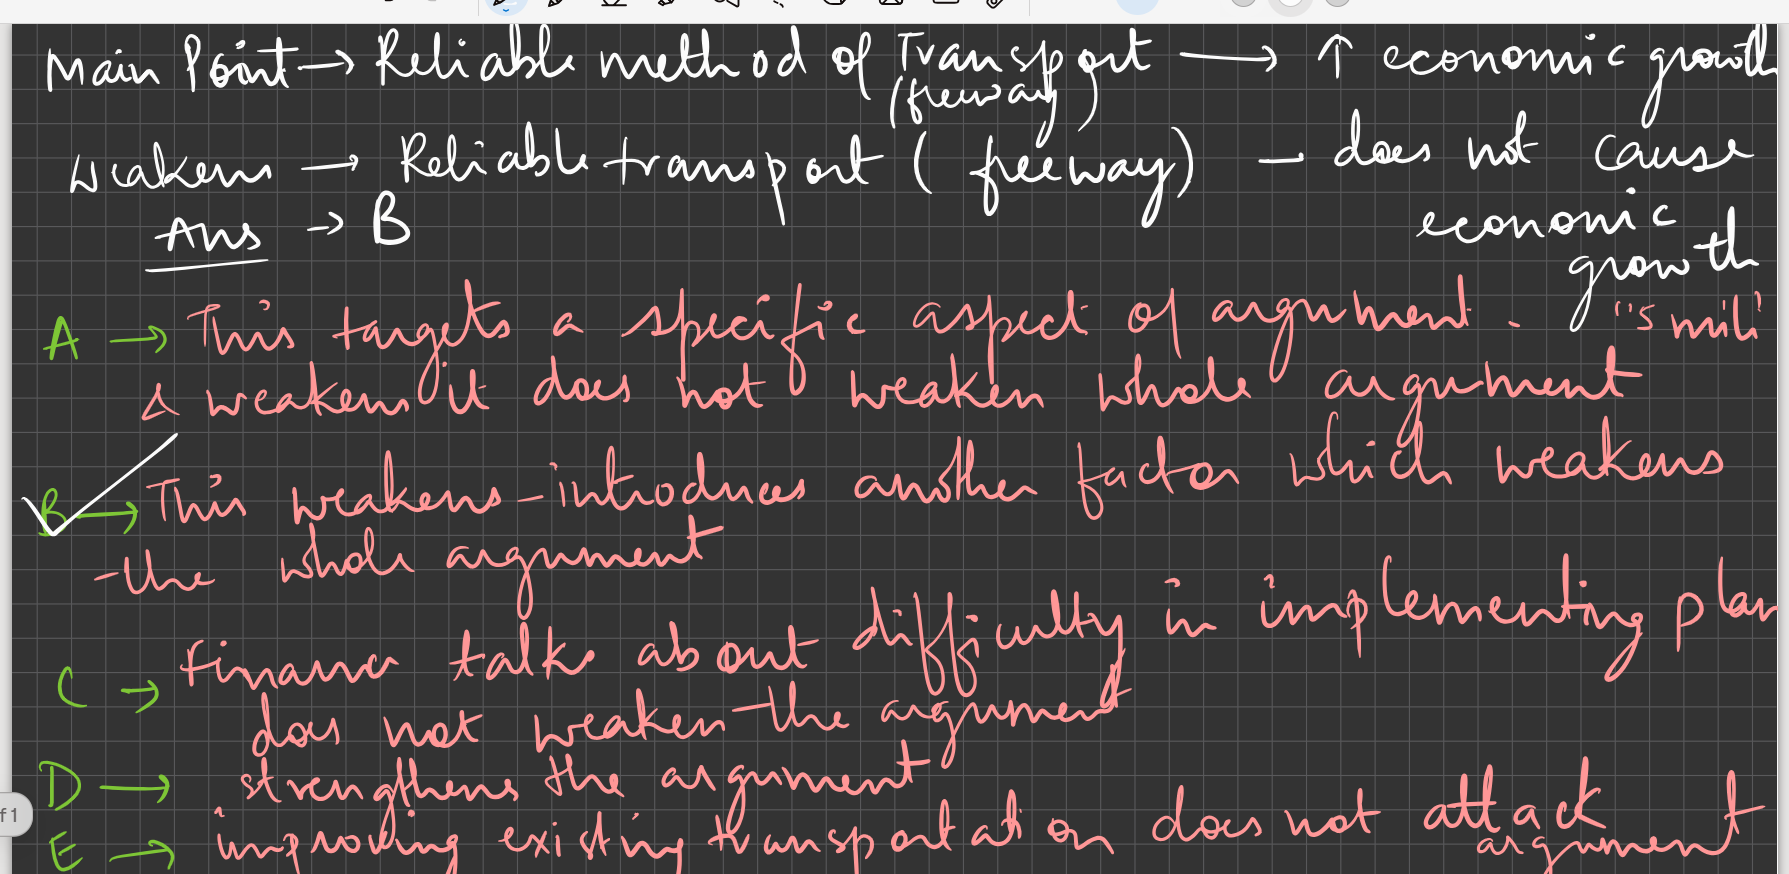 Main Point → Reliable method of Transport → ↑ economic growth
(freeway)
Weakens → Reliable transport (freeway) – does not cause
economic
growth
Ans → B
A → This targets a specific aspect of argument. "5 mil"
& weakens it does not weaken whole argument
B → This weakens – introduces another factor which weakens
the whole argument
C → finance talks about difficulty in implementing plan
does not weaken the argument
D → strengthens the argument
E → improving existing transportation does not attack
argument
f 1